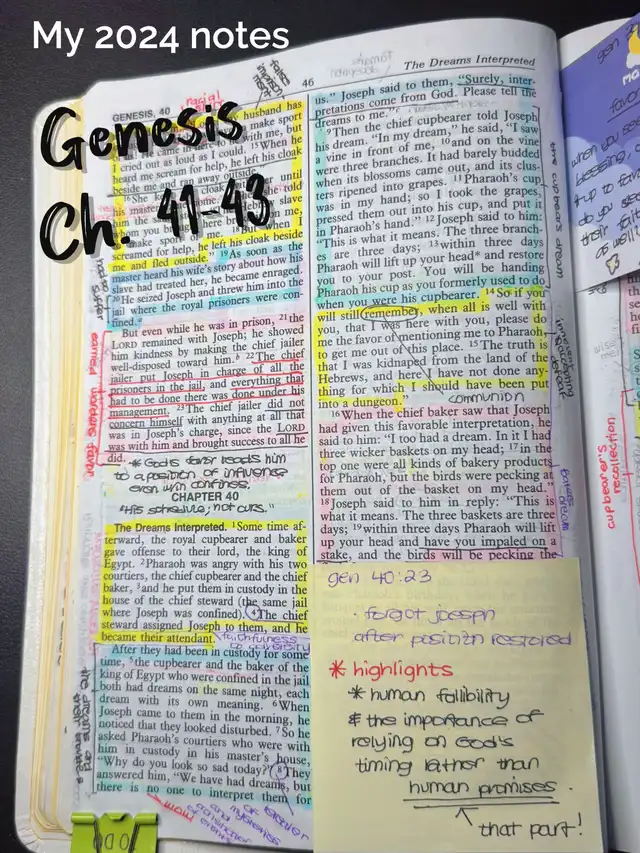 My 2024 notes
Genesis
Ch. 41-43
GENESIS, 40
46
The Dreams Interpreted
racial
husband has
make sport
me, but
I cried out as loud as I could. 15 When he
heard me scream for help, he left his cloak
beside me and ran away outside.
cloak
until
his master
told
slave
me,
make sport
But when I
screamed for help, he left his cloak beside
me and fled outside." 19 As soon as the
master heard his wife's story about how his
slave had treated her, he became enraged.
20 He seized Joseph and threw him into the
jail where the royal prisoners were con-
fined.
But even while he was in prison, 21 the
LORD remained with Joseph; he showed
him kindness by making the chief jailer
well-disposed toward him. 22 The chief
jailer put Joseph in charge of all the
prisoners in the jail, and everything that
had to be done there was done under his
management. 23 The chief jailer did not
concern himself with anything at all that
was in Joseph's charge, since the LORD
was with him and brought success to all he
did.
earned
wardens favor
* God's favor leads him
to a position of influence
even w/in confines.
CHAPTER 40
"His schedule, not ours."
The Dreams Interpreted. 1 Some time af-
terward, the royal cupbearer and baker
gave offense to their lord, the king of
Egypt. 2 Pharaoh was angry with his two
courtiers, the chief cupbearer and the chief
baker, 3 and he put them in custody in the
house of the chief steward (the same jail
where Joseph was confined). 4 The chief
steward assigned Joseph to them, and he
became their attendant.
faithfulness
in adversity
After they had been in custody for some
time, 5 the cupbearer and the baker of the
king of Egypt who were confined in the jail
both had dreams on the same night, each
dream with its own meaning. 6 When
Joseph came to them in the morning, he
noticed that they looked disturbed. 7 So he
asked Pharaoh's courtiers who were with
him in custody in his master's house,
"Why do you look so sad today?" 8 They
answered him, "We have had dreams, but
there is no one to interpret them for
us." Joseph said to them, "Surely, inter-
pretations come from God. Please tell the
dreams to me."
9 Then the chief cupbearer told Joseph
his dream. "In my dream," he said, "I saw
a vine in front of me, 10 and on the vine
were three branches. It had barely budded
when its blossoms came out, and its clus-
ters ripened into grapes. 11 Pharaoh's cup
was in my hand; so I took the grapes,
pressed them out into his cup, and put it
in Pharaoh's hand." 12 Joseph said to him:
"This is what it means. The three branch-
es are three days; 13 within three days
Pharaoh will lift up your head* and restore
you to your post. You will be handing
Pharaoh his cup as you formerly used to do
when you were his cupbearer. 14 So if you
will still remember, when all is well with
you, that I was here with you, please do
me the favor of mentioning me to Pharaoh,
to get me out of this place. 15 The truth is
that I was kidnaped from the land of the
Hebrews, and here I have not done any-
thing for which I should have been put
into a dungeon."
communion
the cupbearer's dream
16 When the chief baker saw that Joseph
had given this favorable interpretation, he
said to him: "I too had a dream. In it I had
three wicker baskets on my head; 17 in the
top one were all kinds of bakery products
for Pharaoh, but the birds were pecking at
them out of the basket on my head."
18 Joseph said to him in reply: "This is
what it means. The three baskets are three
days; 19 within three days Pharaoh will lift
up your head and have you impaled on a
stake, and the birds will be pecking the
gen 40:23
· forgot joseph
after position restored
* highlights
* human fallibility
& the importance of
relying on God's
timing rather than
human promises.
that part!
cupbearer's
recollection